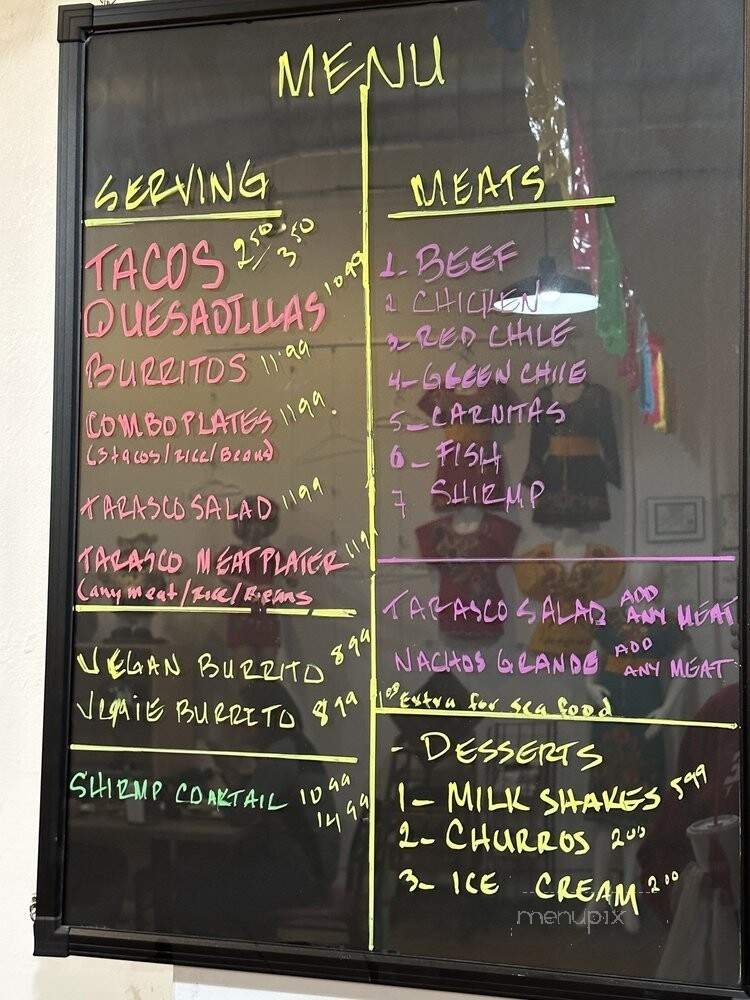 MENU
SERVING
TACOS 2.50/3.50
QUESADILLAS 10.99
BURRITOS 11.99
COMBO PLATES 11.99.
(3 tacos/rice/Beans)
TARASCO SALAD 11.99
TARASCO MEAT PLATER 11.9
(any meat/Rice/Beans
VEGAN BURRITO 8.99
VEGGIE BURRITO 8.99
SHIRMP COAKTAIL 10.99
14.99
MEATS
1- BEEF
2 CHICKEN
3- RED CHILE
4- GREEN CHILE
5- CARNITAS
6- FISH
7 SHIRMP
TARASCO SALAD ADD ANY MEAT
NACHOS GRANDE ADD ANY MEAT
1.00 Extra for sea food
- DESSERTS
1- MILK SHAKES 5.99
2- CHURROS 2.00
3- ICE CREAM 2.00
menupix